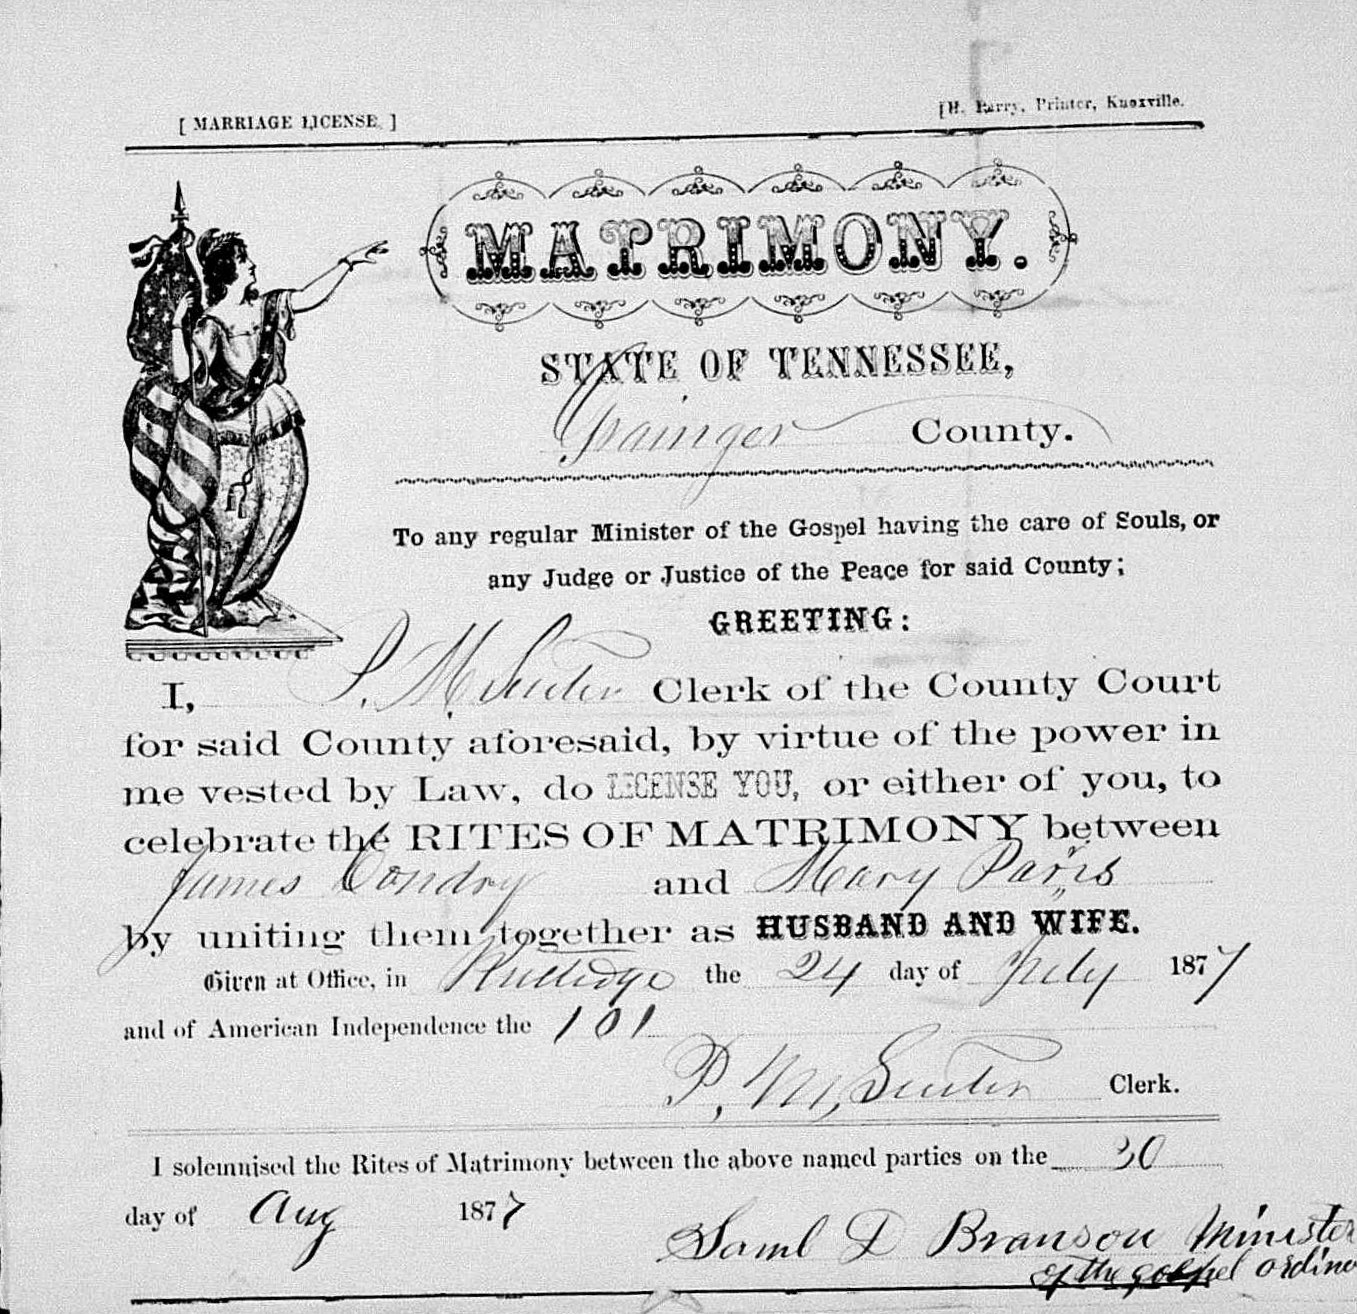 [ MARRIAGE LICENSE. ]
[H. Barry, Printer, Knoxville.
MATRIMONY.
STATE OF TENNESSEE,
Grainger County.
To any regular Minister of the Gospel having the care of Souls, or
any Judge or Justice of the Peace for said County;
GREETING:
I, P. M. Senter Clerk of the County Court
for said County aforesaid, by virtue of the power in
me vested by Law, do LICENSE YOU, or either of you, to
celebrate the RITES OF MATRIMONY between
James Condry and Mary Parris
by uniting them together as HUSBAND AND WIFE.
Given at Office, in Rutledge the 24 day of July 1877
and of American Independence the 101
P. M. Senter Clerk.
I solemnised the Rites of Matrimony between the above named parties on the 30
day of Aug 1877
Saml D Branson Minister
of the gospel ordine